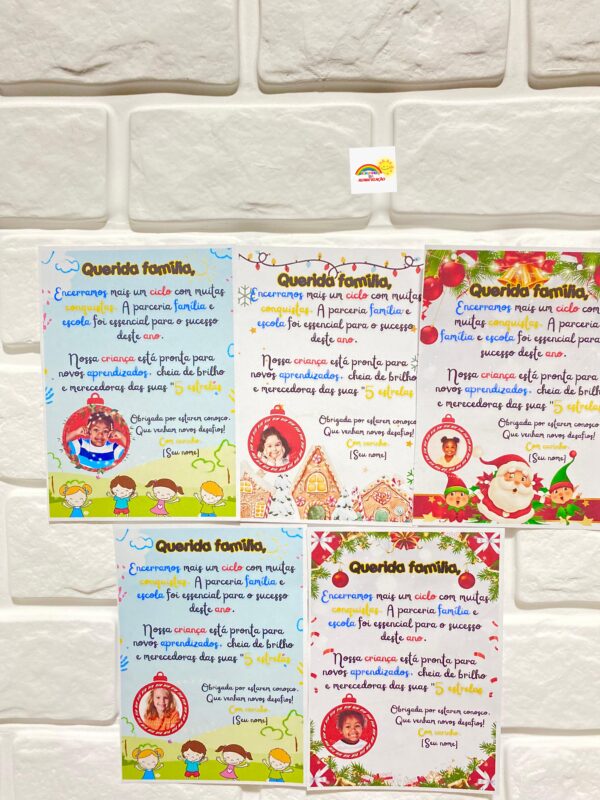 ALFABETIZAÇÃO
Querida família,
Encerramos mais um ciclo com muitas
conquistas. A parceria família e
escola foi essencial para o sucesso
deste ano.
Nossa criança está pronta para
novos aprendizados, cheia de brilho
e merecedoras das suas "5 estrelas
Obrigada por estarem conosco.
Que venham novos desafios!
Com carinho,
[Seu nome]
Querida família,
Encerramos mais um ciclo com muitas
conquistas. A parceria família e
escola foi essencial para o sucesso
deste ano.
Nossa criança está pronta para
novos aprendizados, cheia de brilho
e merecedoras das suas "5 estrelas
Obrigada por estarem conosco.
Que venham novos desafios!
Com carinho,
[Seu nome]
Querida família,
Encerramos mais um ciclo com
muitas conquistas. A parceria
família e escola foi essencial para o
sucesso deste ano.
Nossa criança está pronta para
novos aprendizados, cheia de brilho
e merecedoras das suas "5 estrelas
Obrigada por estarem conosco.
Que venham novos desafios!
Com carinho,
[Seu nome]
Querida família,
Encerramos mais um ciclo com muitas
conquistas. A parceria família e
escola foi essencial para o sucesso
deste ano.
Nossa criança está pronta para
novos aprendizados, cheia de brilho
e merecedoras das suas "5 estrelas
Obrigada por estarem conosco.
Que venham novos desafios!
Com carinho,
[Seu nome]
Querida família,
Encerramos mais um ciclo com muitas
conquistas. A parceria família e
escola foi essencial para o sucesso
deste ano.
Nossa criança está pronta para
novos aprendizados, cheia de brilho
e merecedoras das suas "5 estrelas
Obrigada por estarem conosco.
Que venham novos desafios!
Com carinho,
[Seu nome]